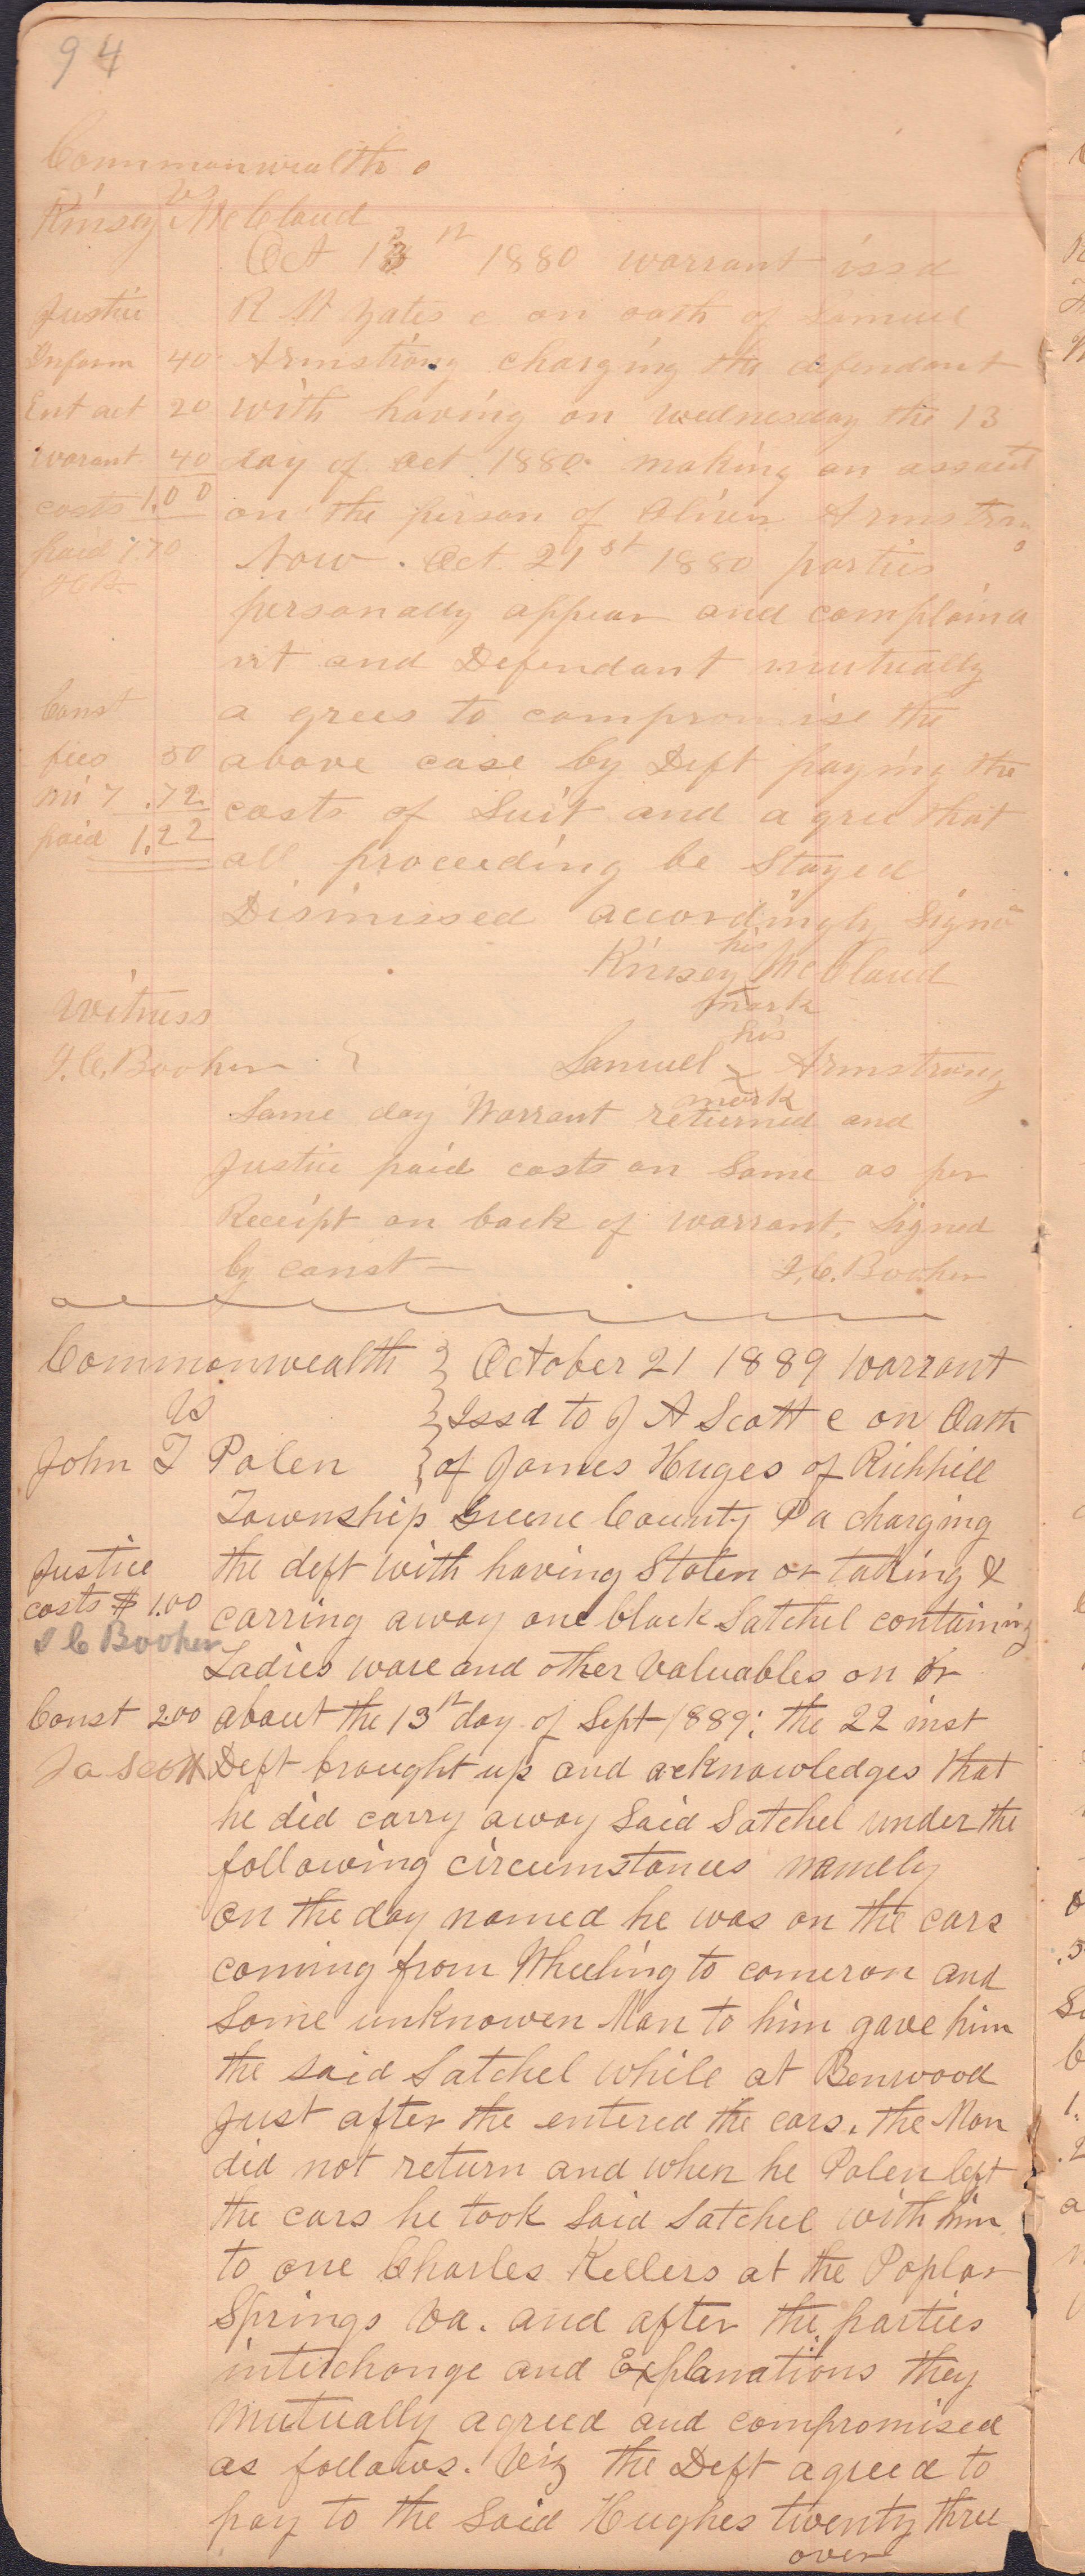 94
Commonwealth
vs
Kinsey McClaud
Oct 13th 1880 warrant issd
Justice R W Yates c on oath of Samuel
Inform 40 Armstrong charging the defendant
Ent act 20 with having on wednesday the 13
warant 40 day of Oct 1880 making an assault
costs 1.00 on the person of Armstrong
paid Now . Oct 21st 1880 parties
personally appear and complaina
nt and Defendant mutually
Const a grees to compromise the
fees 50 above case by Deft paying the
mi 7 .72 costs of Suit and a gree that
paid 1.22 all proceeding be Stayed
Dismissed accordingly Signd
his
Kinsey McClaud
mark
Witness his
I. C. Booher } Samuel x Armstrong
mark
Same day Warrant returned and
Justice paid costs on Same as per
Receipt on back of warrant. Signed
by const — I. C. Booher
Commonwealth } October 21 1889 Warrant
vs } Issd to J A Scott c on Oath
John T Polen } of James Huges of Richhill
Township Greene County Pa charging
Justice the deft with having Stolen or taking &
costs $ 1.00 carring away one black Satchel containing
I C Booher Ladies ware and other Valuables on or
Const 200 about the 13th day of Sept 1889; the 22 inst
Ja Scott Deft brought up and acknowledges that
he did carry away Said Satchel under the
following circumstances namely
on the day named he was on the cars
coming from Wheeling to comeron and
Some unknowen Man to him gave him
the said Satchel while at Benwood
Just after the entered the cars. the Man
did not return and when he Polen left
the cars he took Said Satchel with him
to one Charles Kellers at the Poplar
Springs Va. and after the parties
interchange and Explanations they
Mutually agreed and compromised
as follows. Viz the Deft agreed to
pay to the Said Hughes twenty three
over